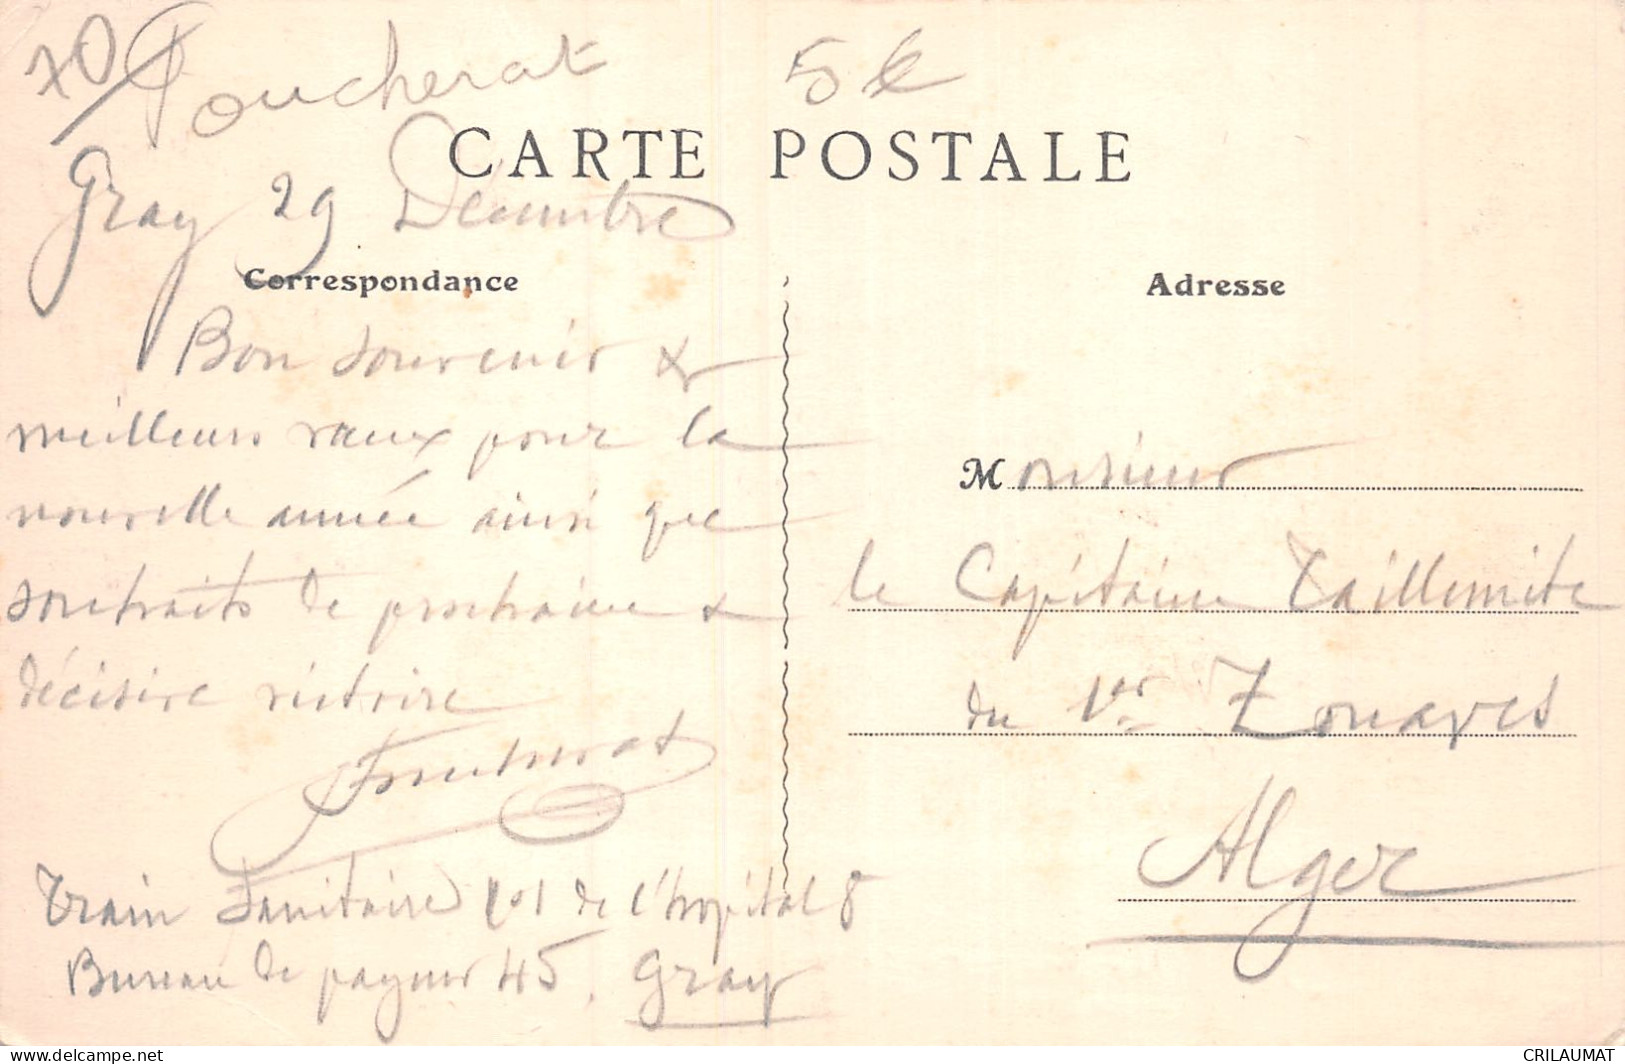 70
Foucherat
5€
CARTE POSTALE
Gray 29 Décembre
Correspondance
Adresse
Bon souvenir &
meilleurs vœux pour la
nouvelle année ainsi que
souhaits de prochaine &
décisive victoire
Foucherat
Train Sanitaire de l'hopital 8
Bureau de payeur 45. Gray
Monsieur
le Capitaine Taillemite
du 1er Zouaves
Alger
CRILAUMAT